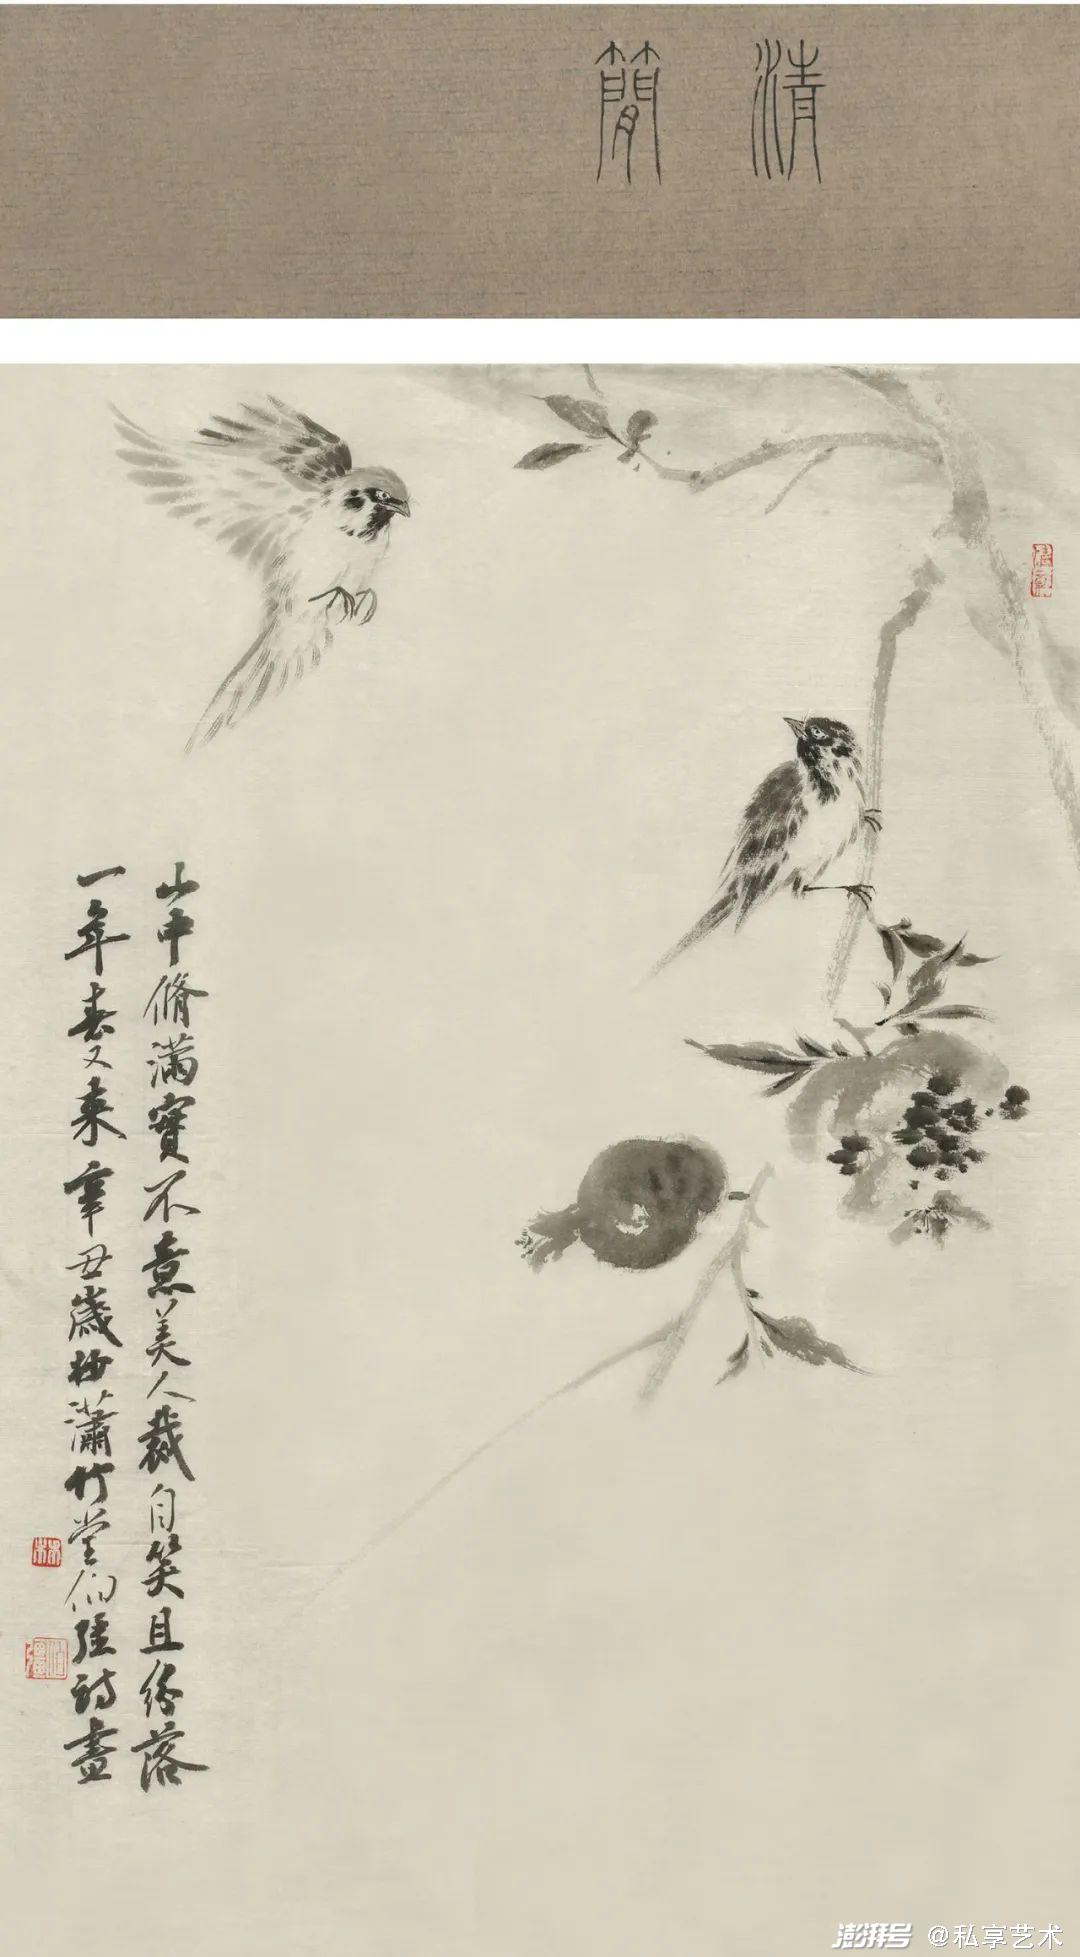 清簡
山中脩滿實不意美人裁自笑且紛落
一年春又來辛丑歲杪瀟竹堂伯强詩畫
澎湃号 @私享艺术